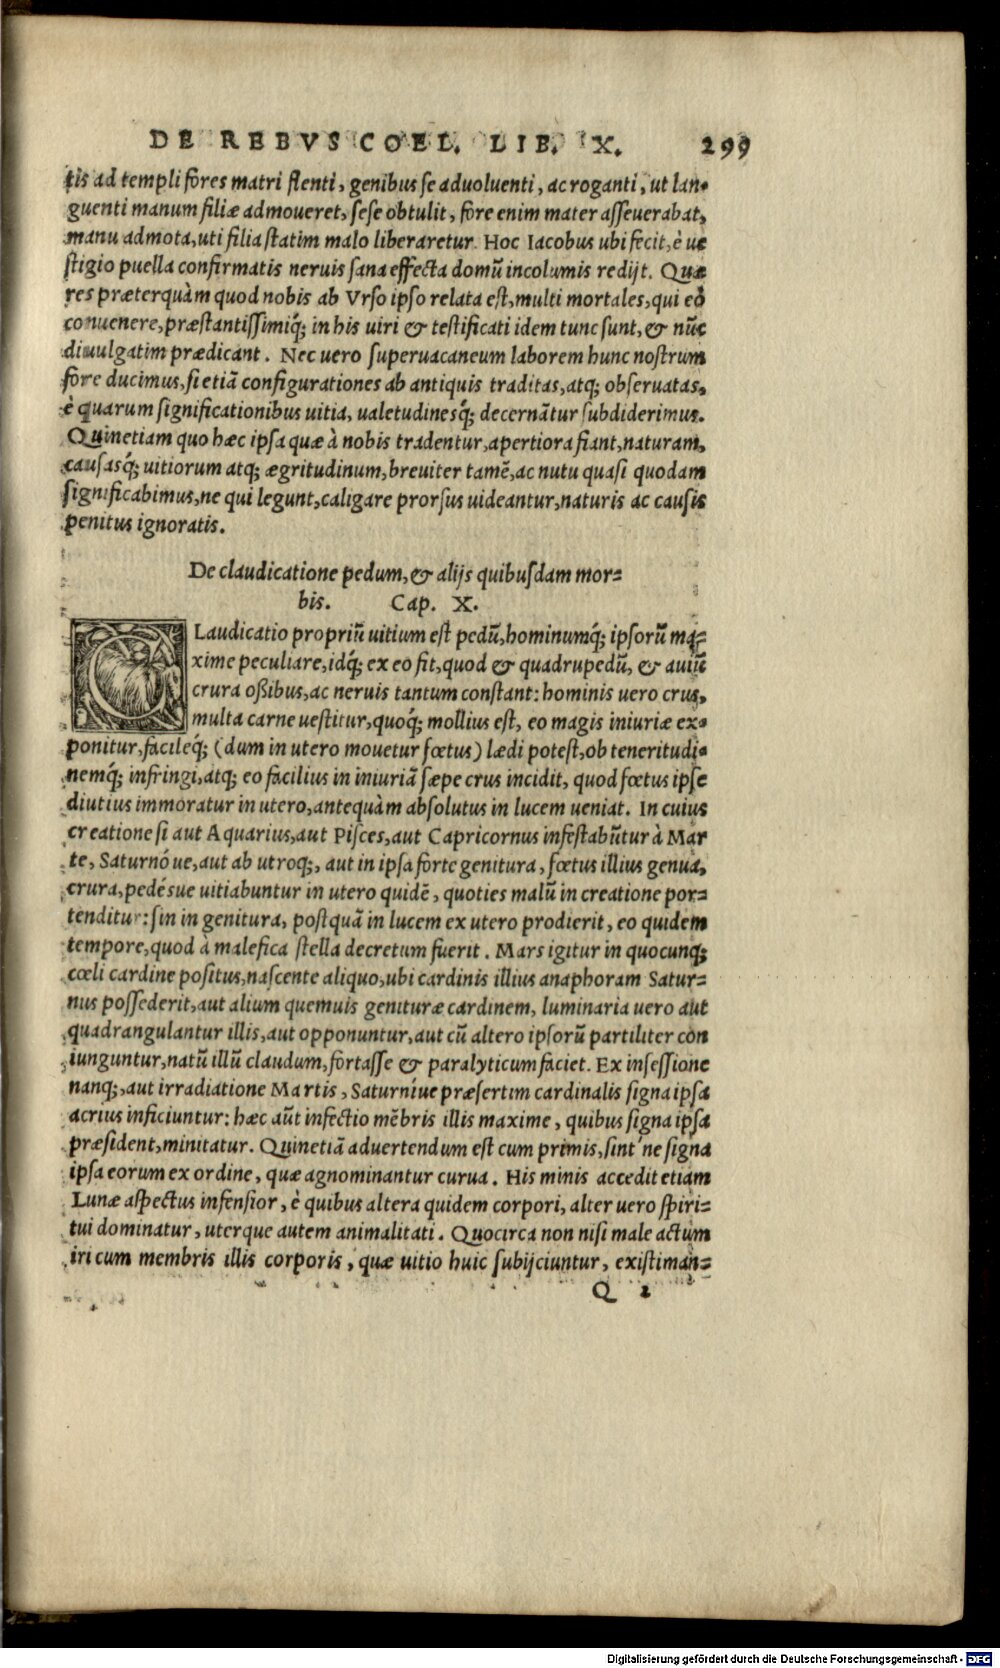 DE REBVS COEL. LIB. X. 299
tis ad templi fores matri flenti, genibus se aduoluenti, ac roganti, ut lan-
guenti manum filiæ admoueret, sese obtulit, fore enim mater asseuerabat,
manu admota, uti filia statim malo liberaretur. Hoc Iacobus ubi fecit, è ue
stigio puella confirmatis neruis sana effecta domũ incolumis redijt. Quæ
res præterquàm quod nobis ab Vrso ipso relata est, multi mortales, qui eò
conuenere, præstantissimiq́; in his uiri & testificati idem tunc sunt, & nũc
diuulgatim prædicant. Nec uero superuacaneum laborem hunc nostrum
fore ducimus, si etiã configurationes ab antiquis traditas, atq; obseruatas,
è quarum significationibus uitia, ualetudinesq́; decernãtur subdiderimus.
Quinetiam quo hæc ipsa quæ à nobis tradentur, apertiora fiant, naturam,
causasq́; uitiorum atq; ægritudinum, breuiter tamẽ, ac nutu quasi quodam
significabimus, ne qui legunt, caligare prorsus uideantur, naturis ac causis
penitus ignoratis.
De claudicatione pedum, & alijs quibusdam mor=
bis. Cap. X.
CLaudicatio propriũ uitium est pedũ, hominumq́; ipsorũ ma=
xime peculiare, idq́; ex eo fit, quod & quadrupedũ, & auiũ
crura oßibus, ac neruis tantum constant: hominis uero crus,
multa carne uestitur, quoq́; mollius est, eo magis iniuriæ ex-
ponitur, facileq́; (dum in utero mouetur fœtus) lædi potest, ob teneritudi-
nemq́; infringi, atq; eo facilius in iniuriã sæpe crus incidit, quod fœtus ipse
diutius immoratur in utero, antequàm absolutus in lucem ueniat. In cuius
creatione si aut Aquarius, aut Pisces, aut Capricornus infestabũtur à Mar
te, Saturnóue, aut ab utroq;, aut in ipsa forte genitura, fœtus illius genua,
crura, pedésue uitiabuntur in utero quidẽ, quoties malũ in creatione por=
tenditur: sin in genitura, postquã in lucem ex utero prodierit, eo quidem
tempore, quod à malefica stella decretum fuerit. Mars igitur in quocunq;
cœli cardine positus, nascente aliquo, ubi cardinis illius anaphoram Satur=
nus possederit, aut alium quemuis genituræ cardinem, luminaria uero aut
quadrangulantur illis, aut opponuntur, aut cũ altero ipsorũ partiliter con
iunguntur, natũ illũ claudum, fortasse & paralyticum faciet. Ex insessione
nanq;, aut irradiatione Martis, Saturníue præsertim cardinalis signa ipsa
acrius inficiuntur: hæc aũt infectio mẽbris illis maxime, quibus signa ipsa
præsident, minitatur. Quinetiã aduertendum est cum primis, sint'ne signa
ipsa eorum ex ordine, quæ agnominantur curua. His minis accedit etiam
Lunæ aspectus infensior, è quibus altera quidem corpori, alter uero spiri=
tui dominatur, uterque autem animalitati. Quocirca non nisi male actum
iri cum membris illis corporis, quæ uitio huic subijciuntur, existiman=
Q 2
Digitalisierung gefördert durch die Deutsche Forschungsgemeinschaft - DFG